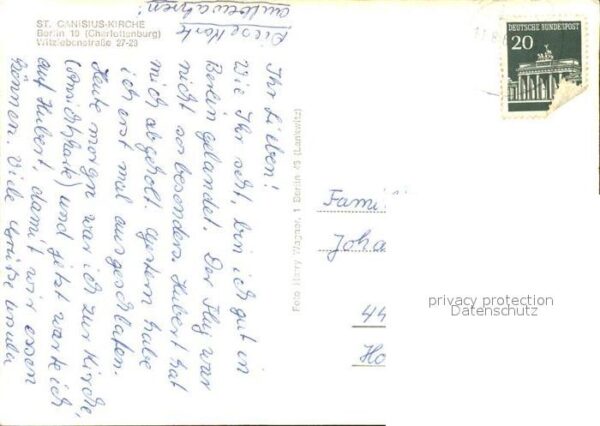 ST. CANISIUS-KIRCHE
Berlin 19 (Charlottenburg)
Witzlebenstraße 27-29
Diese Karte
aufbewahren!
Ihr Lieben!
Wie Ihr seht, bin ich gut in
Berlin gelandet. Der Flug war
nicht so besonders. Hubert hat
mich abgeholt. Gestern habe
ich erst mal ausgeschlafen.
Heute morgen war ich zur Kirche,
(Ansichtskarte) und jetzt warte ich
auf Hubert, damit wir essen
können. Viele Grüße Ursula
Foto Harry Wagner, 1 Berlin 45 (Lankwitz)
DEUTSCHE BUNDESPOST
20
Fami
Joha
44
Ho
privacy protection
Datenschutz